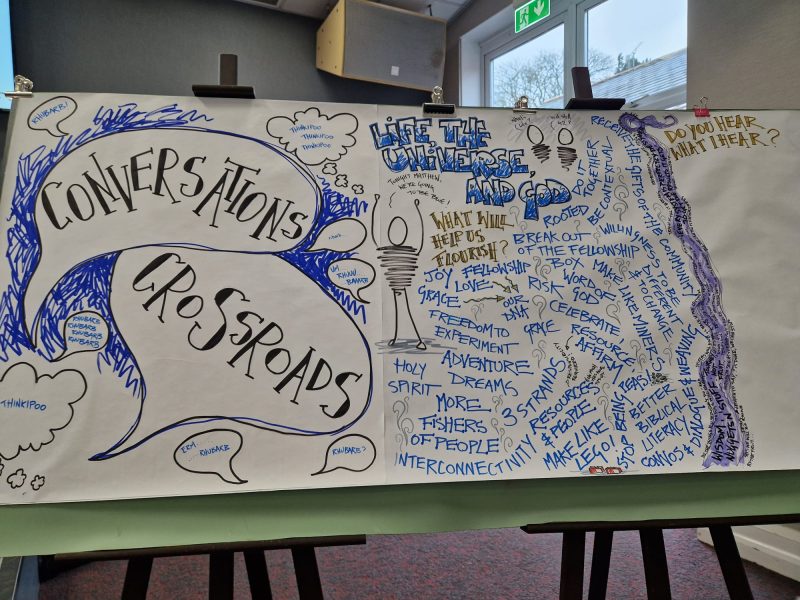 RHUBARB!
CONVERSATIONS
CROSSROADS
THINKIPOO
THINKIPOO
THINKIPOO
RHUBARB
RHUBARB
RHUBARB
RHUBARB
THINKIPOO
ERM..
RHUBARB
RHUBARB?
LIFE THE
UNIVERSE,
AND GOD
TONIGHT MATTHEW,
WE'RE GOING
TO BE
WHAT WILL
HELP US
FLOURISH?
JOY FELLOWSHIP
LOVE
GRACE
OUR
DNA
FREEDOM TO
EXPERIMENT
HOLY
SPIRIT
ADVENTURE
DREAMS
MORE
FISHERS
OF PEOPLE
INTERCONNECTIVITY
DO IT
TOGETHER
ROOTED
BE CONTEXTUAL
BREAK OUT
OF THE FELLOWSHIP
BOX
RISK
WORD OF
GOD
CELEBRATE
RESOURCE
AFFIRM
3 STRANDS
RESOURCES
& PEOPLE
MAKE LIKE
LEGO!
STOP BEING TEABAGS!
MAKE LIKE MINERS
WILLINGNESS TO BE
DIFFERENT
& TO CHANGE
RECEIVE THE GIFTS OF THE COMMUNITY
BETTER
BIBLICAL
LITERACY
CONVOS &
DIALOGUE & WEAVING
DO YOU HEAR
WHAT I HEAR?